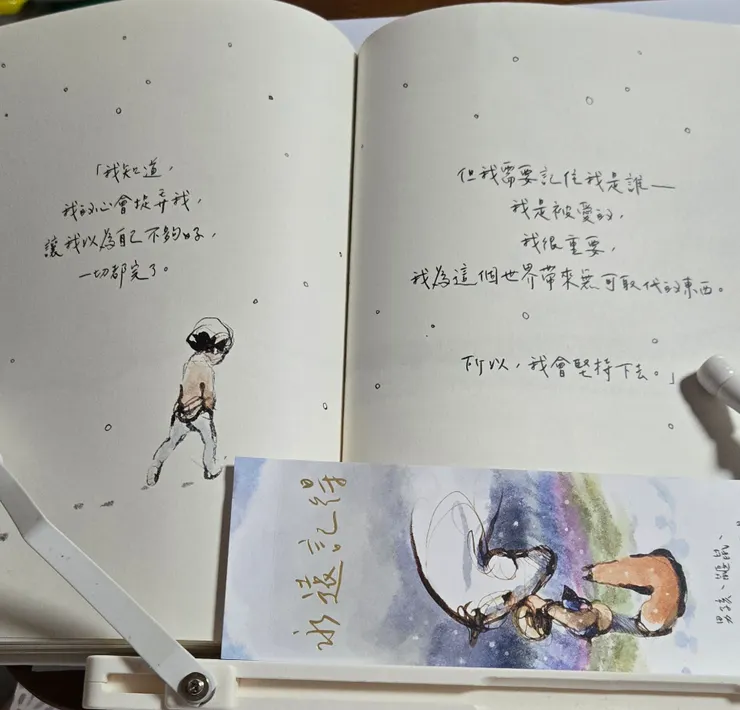 「我知道，
我的心會捉弄我，
讓我以為自己不夠好，
一切都完了。
但我需要記住我是誰—
我是被愛的，
我很重要，
我為這個世界帶來無可取代的東西。
所以，我會堅持下去。」
永遠記得
男孩、鼴鼠、